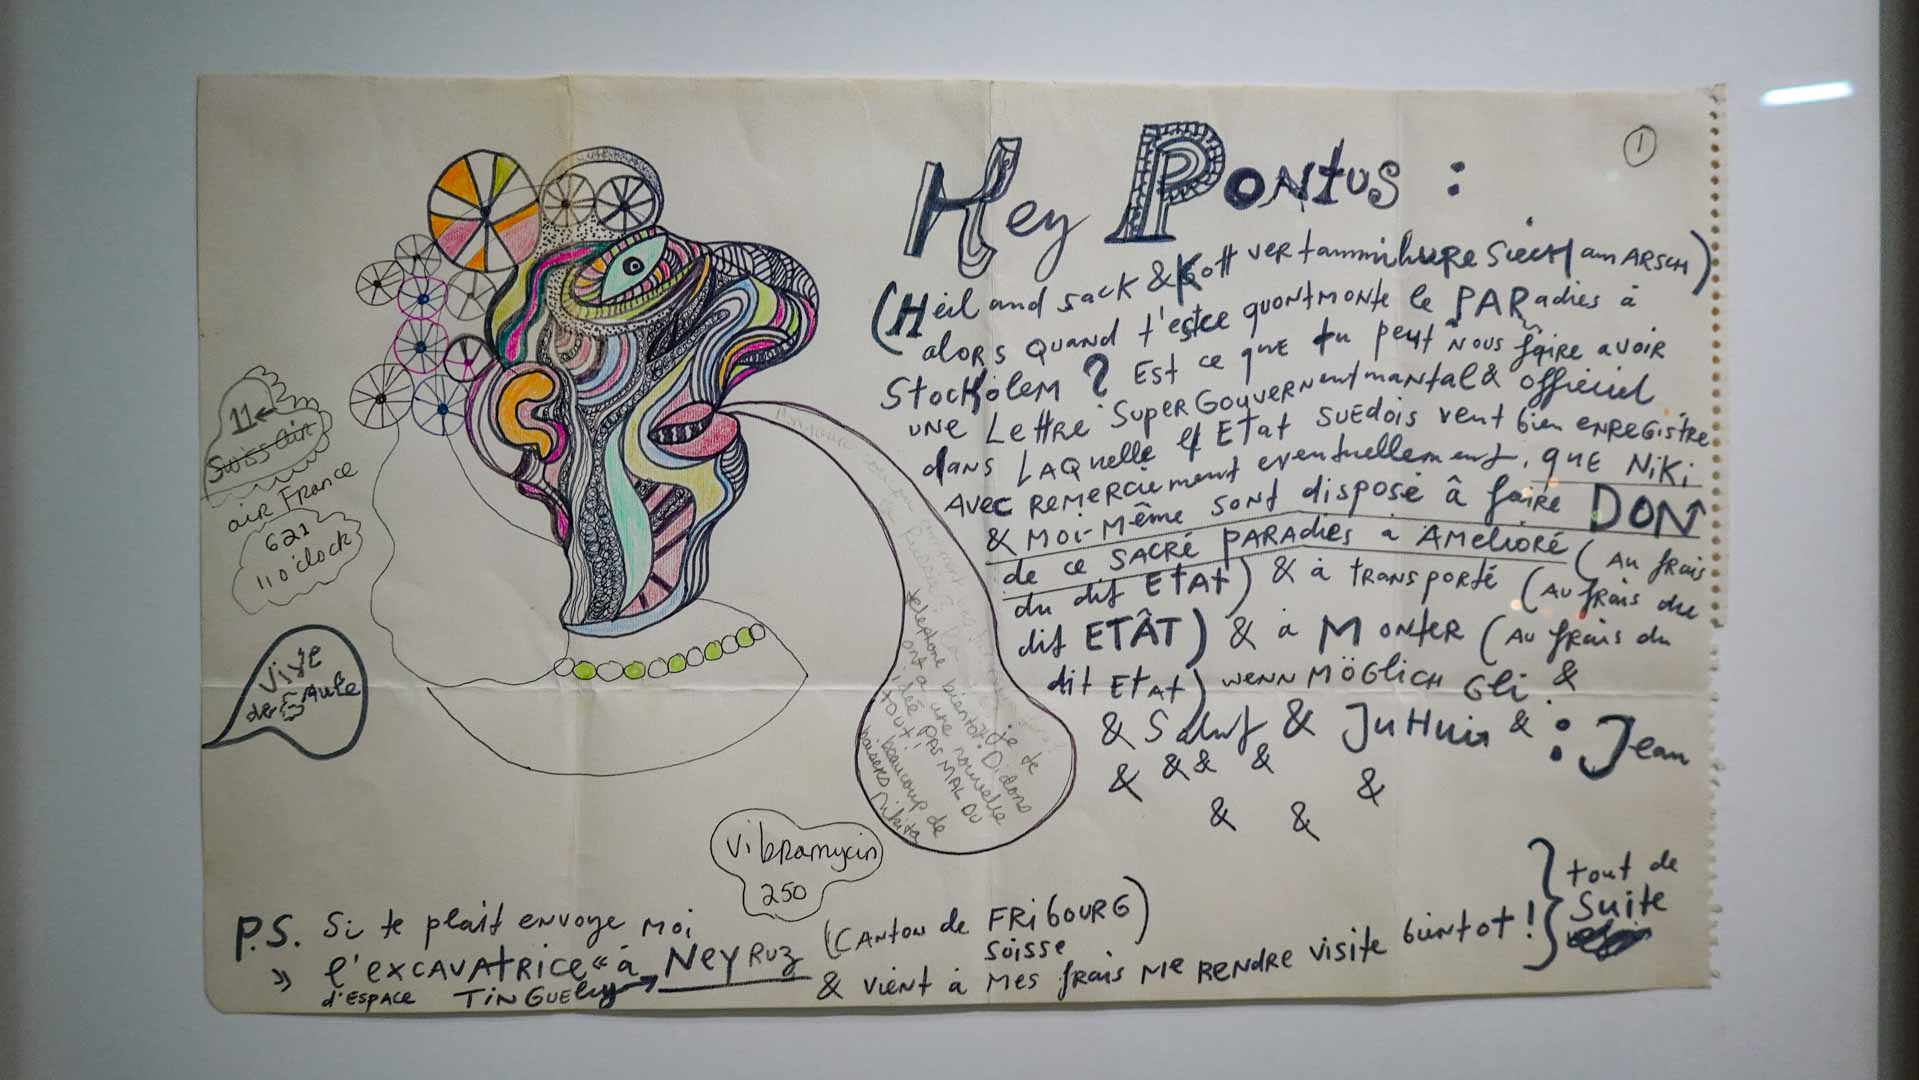 1
Hey Pontus :
(Heil and sack & Gott ver tammi hure Siech am ARSCH)
alors quand t'estce quontmonte le PARadies à
StocKolem ? Est ce que tu peut nous faire avoir
une Lettre Super Gouvernmental & officiel
dans LAQuelle l'Etat SuEdois veut bien enregistre
Avec remerciement eventuellement, que Niki
& Moi-Même sont disposé â faire DON
de ce SACRÉ PARADies à Amelioré (Au frais
du dit EtAt) & à transporté (Au frais du
dit ETÂT) & à Monter (Au frais du
dit EtAt) wenn Möglich Gli &
& Salut & JuHuii & : Jean
& & & &
& & &
11 ←
Swiss air
air France
621
11 o'clock
Vive
de Aule
je te
telephone bientôt. Didons
ont a une nouvelle
idée PAS MAL DU
TOUT!
beaucoup de
baisers Nikita
Vibramycin
250
P.S. Si te plait envoye moi
» l'EXCAVATRICE « à → Neyruz (Canton de FRiBOURG)
d'ESPACE TiNGUely
Suisse
& vient à mes frais Me RENDRE visite bientot ! } tout de
Suite